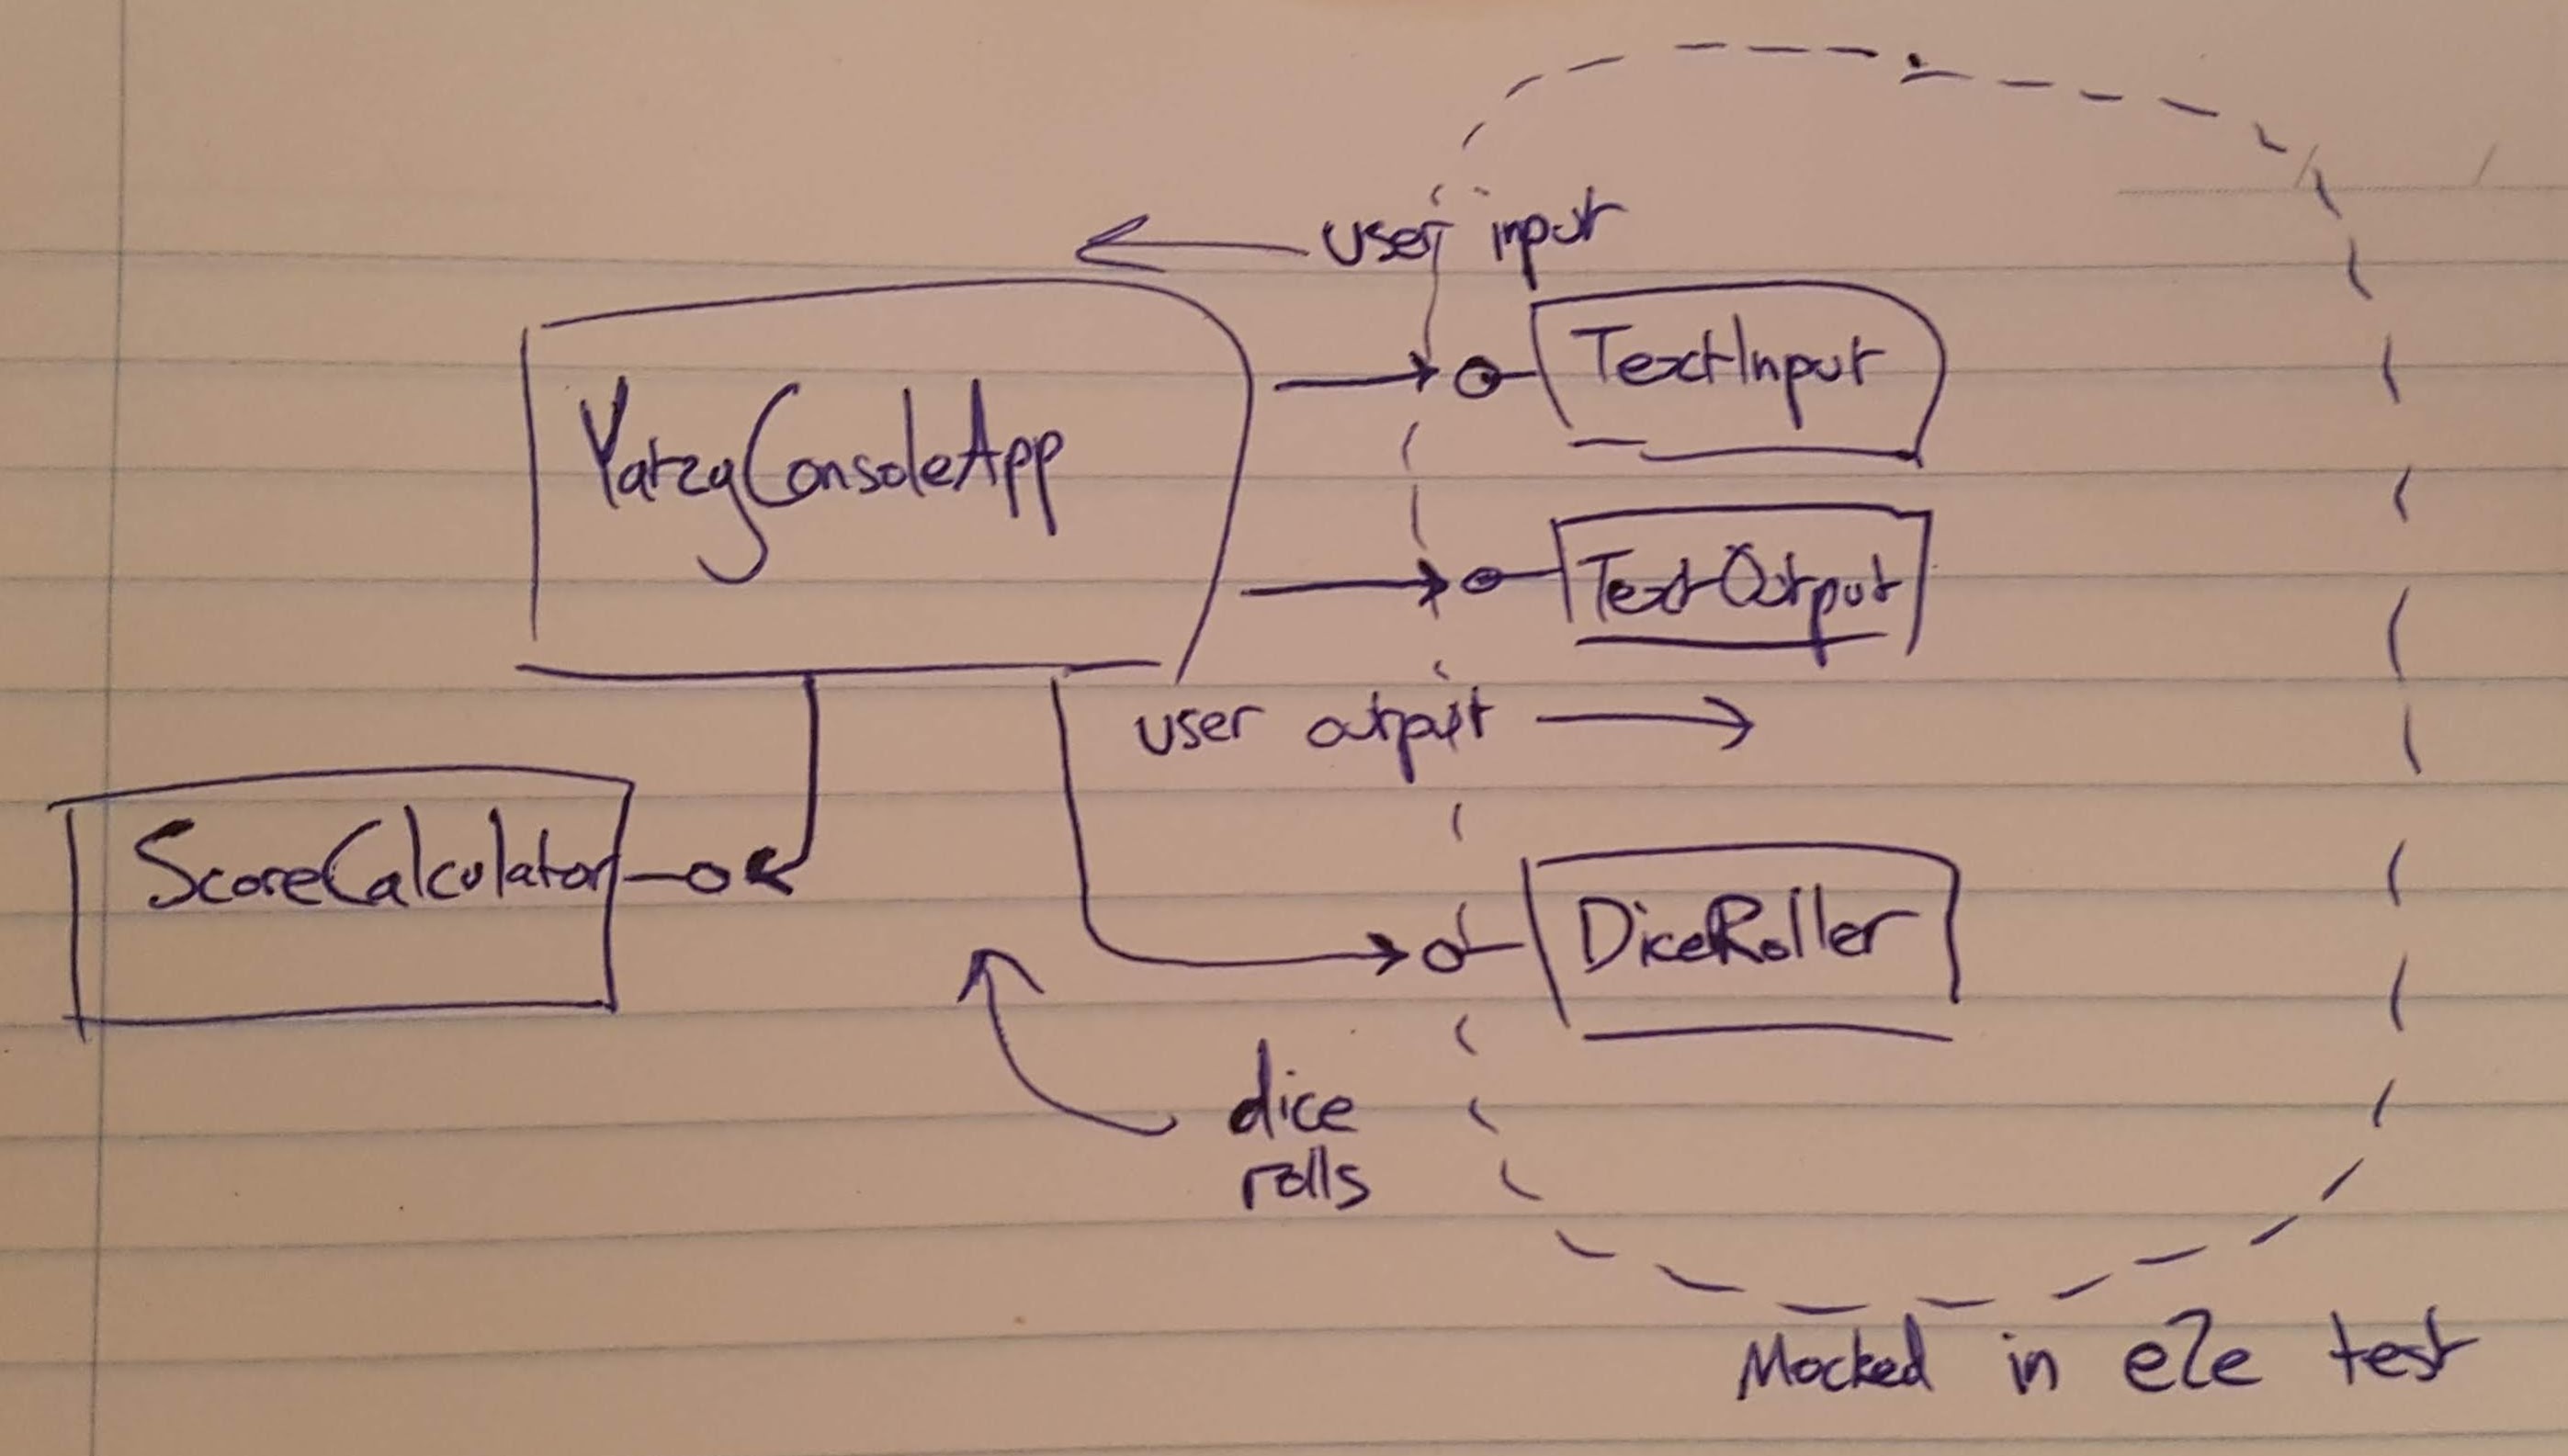 user input
TextInput
YatzyConsoleApp
TextOutput
user output
ScoreCalculator
DiceRoller
dice
rolls
Mocked in e2e test